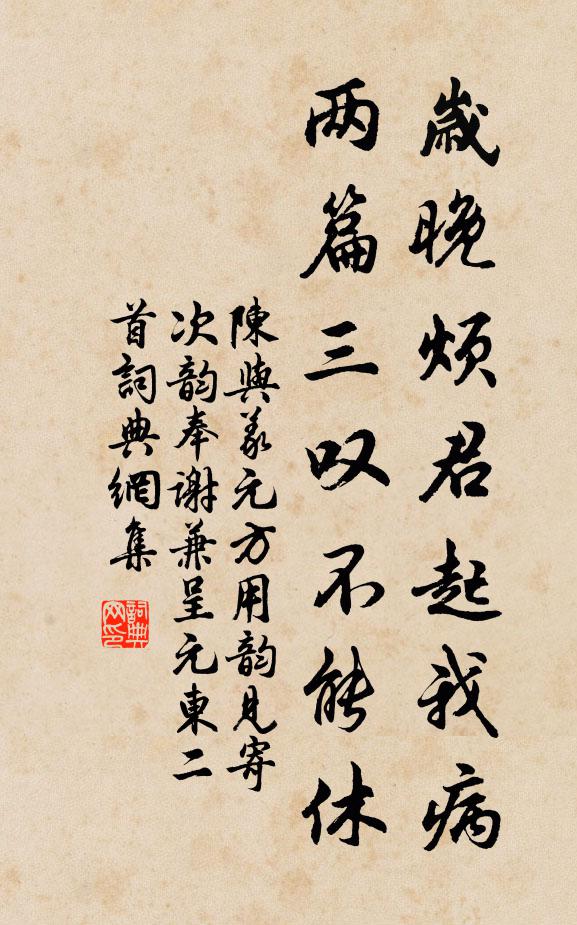 歲晚煩君起我病
两篇三叹不能休
陳與義元方用韵見寄
次韵奉謝兼呈元東二
首詞典網集
詞典网印